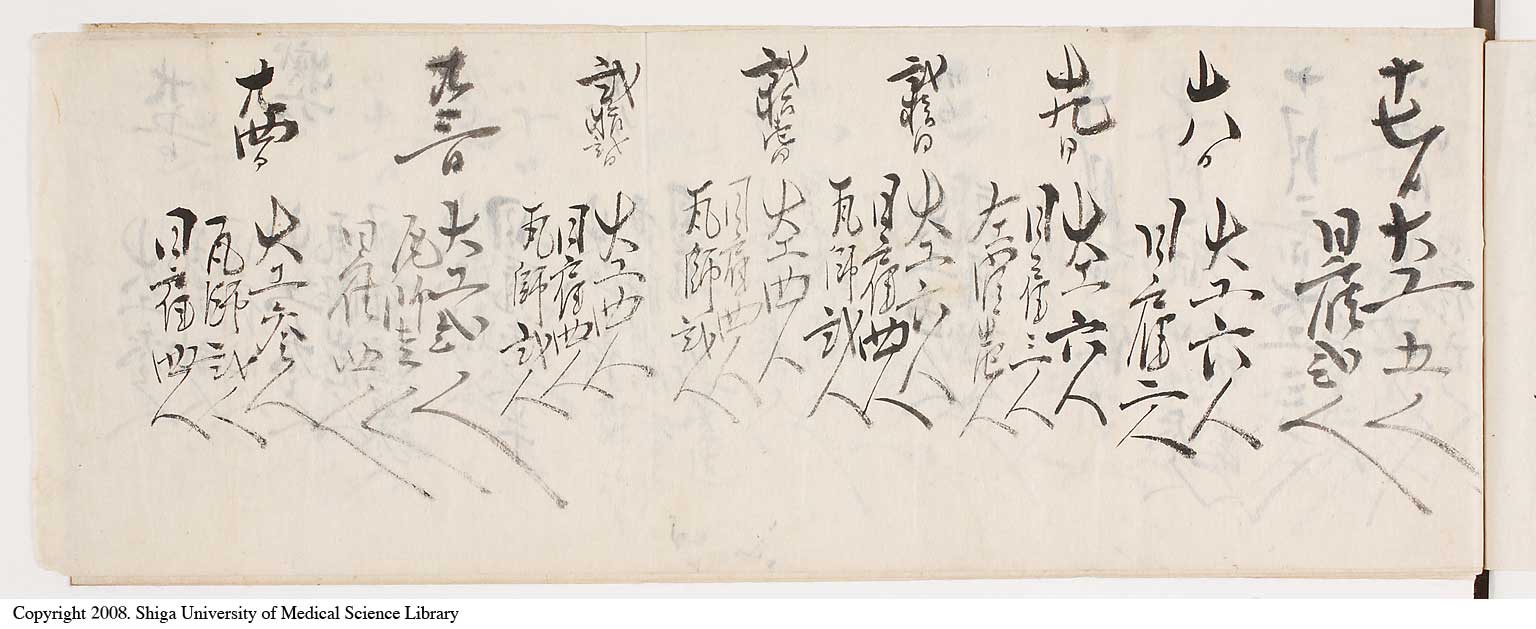 十七日
大工 五人
日雇 弐人
十八日
大工 六人
日雇 六人
十九日
大工 六人
日雇 三人
左官 壱人
弐拾日
大工 六人
日雇 四人
瓦師 弐人
弐拾壱日
大工 四人
日雇 四人
瓦師 弐人
弐拾弐日
大工 四人
日雇 四人
瓦師 弐人
廿三日
大工 弐人
瓦師 壱人
日雇 四人
廿四日
大工 参人
瓦師 弐人
日雇 四人
Copyright 2008. Shiga University of Medical Science Library